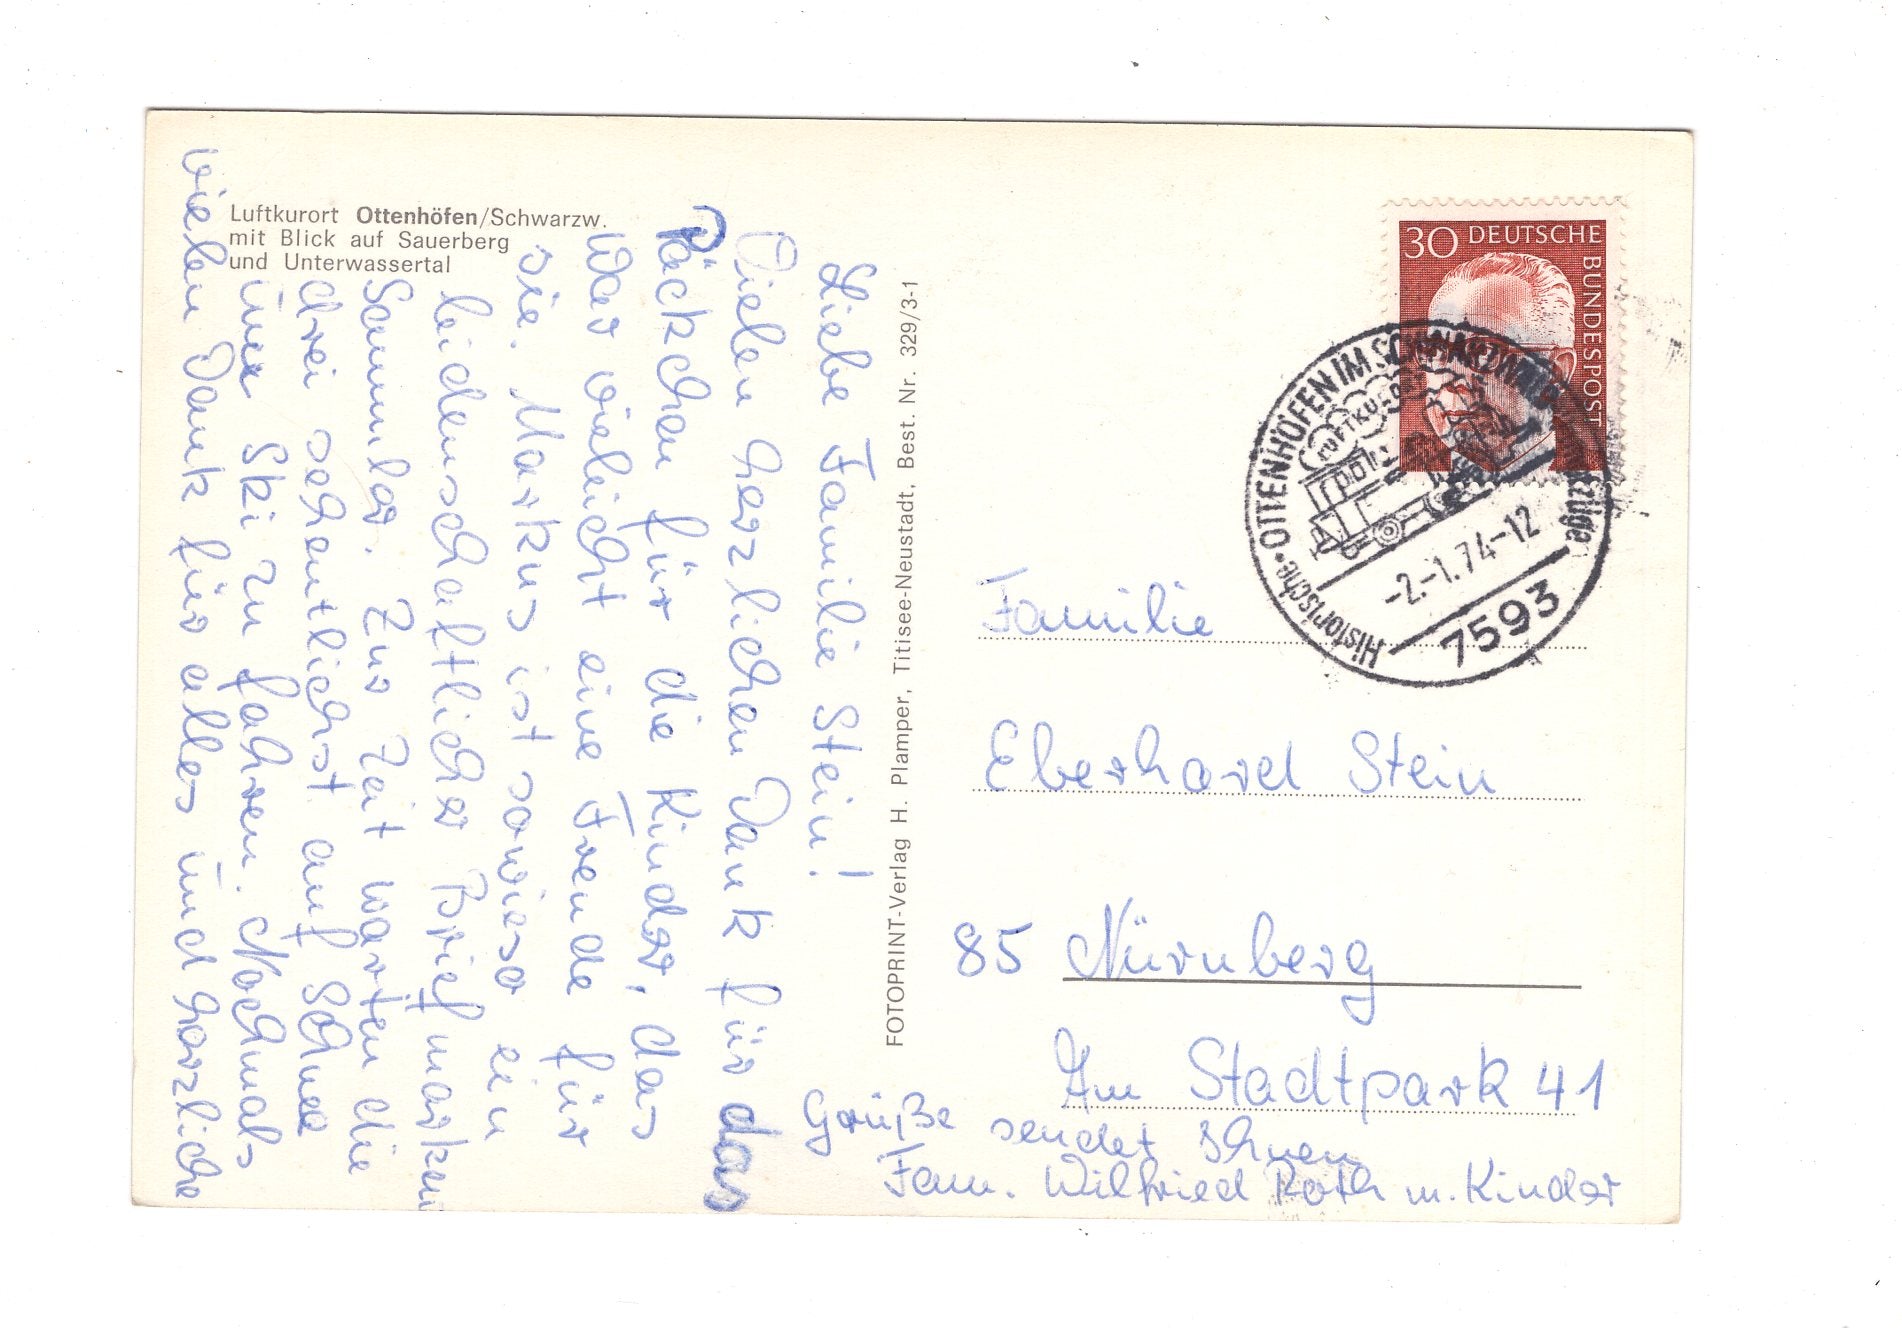 Luftkurort Ottenhöfen/Schwarzw.
mit Blick auf Sauerberg
und Unterwassertal
Liebe Familie Stein!
Vielen herzlichen Dank für das
Päckchen für die Kinder, das
war vieleicht eine Freude für
sie. Markus ist sowieso ein
leidenschaftlicher Briefmarken
Sammler. Zur Zeit warten die
drei sehentlichst auf Schnee
um Ski zu fahren. Nochmals
vielen Dank für alles und herzliche
Grüße sendet Ihnen
Fam. Wilfried Roth m. Kinder
FOTOPRINT-Verlag H. Plamper, Titisee-Neustadt, Best. Nr. 329/3-1
30 DEUTSCHE
BUNDESPOST
OTTENHÖFEN IM SCHWARZWALD
LUFTKURORT
-2.-1.74-12
7593
Historische
Familie
Eberhard Stein
85 Nürnberg
Am Stadtpark 41